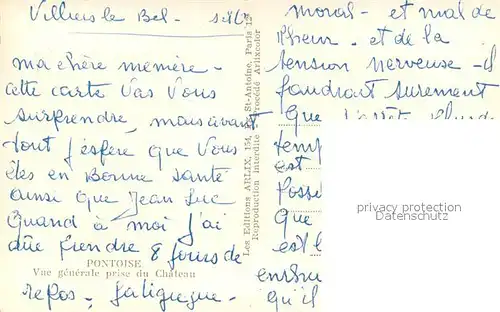 Villiers le Bel -
ma chère mémère -
cette carte vas vous
surprendre, mais avant
tout j'espère que vous
êtes en Bonne santé
ainsi que Jean Luc
Quand à moi j'ai
dûe prendre 8 jours de
PONTOISE
Vue générale prise du Château
repos - fatiguque -
Les Editions ARLIX, 154, St-Antoine, Paris
Reproduction Interdite Procédé Arlixcolor
moral - et mal de
Rhein - et de la
tension nerveuse - il
faudrait surement
que
temp
est
Possi
que
est
ensui
qu'il
privacy protection
Datenschutz